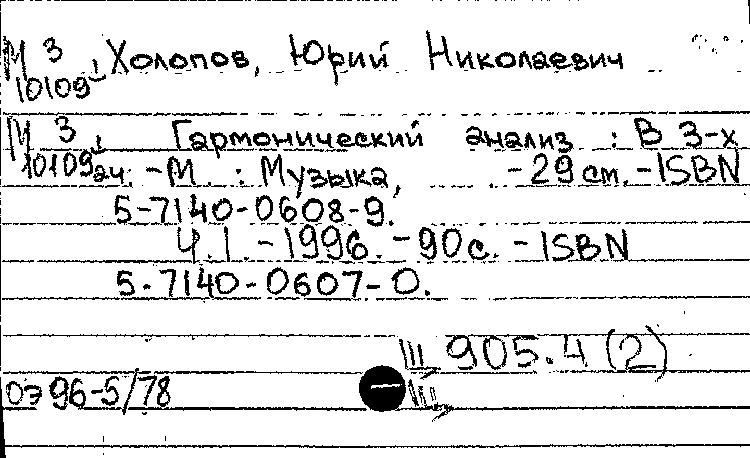 М 3 Холопов, Юрий Николаевич
10109
М 3 Гармонический анализ : В 3-х
10109 ч. - М. : Музыка, - 29 см. - ISBN
5-7140-0608-9.
Ч.1. - 1996. - 90с. - ISBN
5-7140-0607-0.
Щ 905.4 (2)
оэ 96-5/78